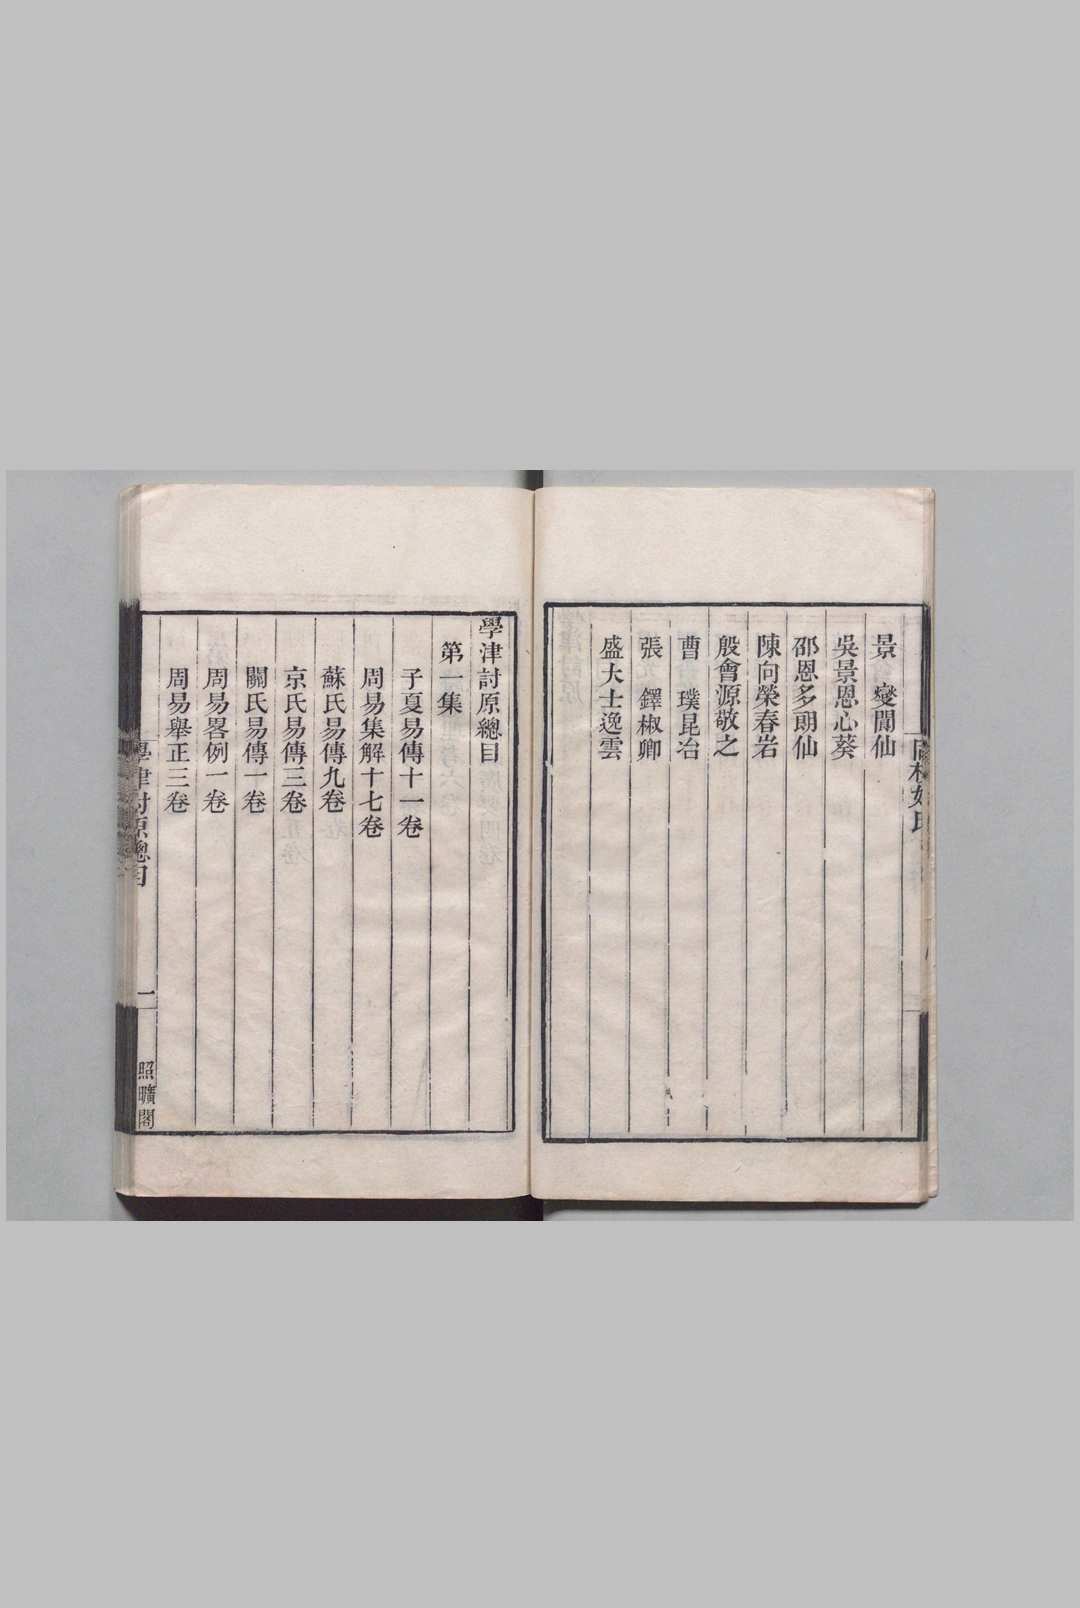 景　燮閒仙
吳景恩心葵
邵恩多朗仙
陳向榮春岩
殷會源敬之
曹　璞昆冶
張　鐸椒卿
盛大士逸雲
學津討原總目
第一集
子夏易傳十一卷
周易集解十七卷
蘇氏易傳九卷
京氏易傳三卷
關氏易傳一卷
周易畧例一卷
周易舉正三卷
學津討原總目
一
照曠閣